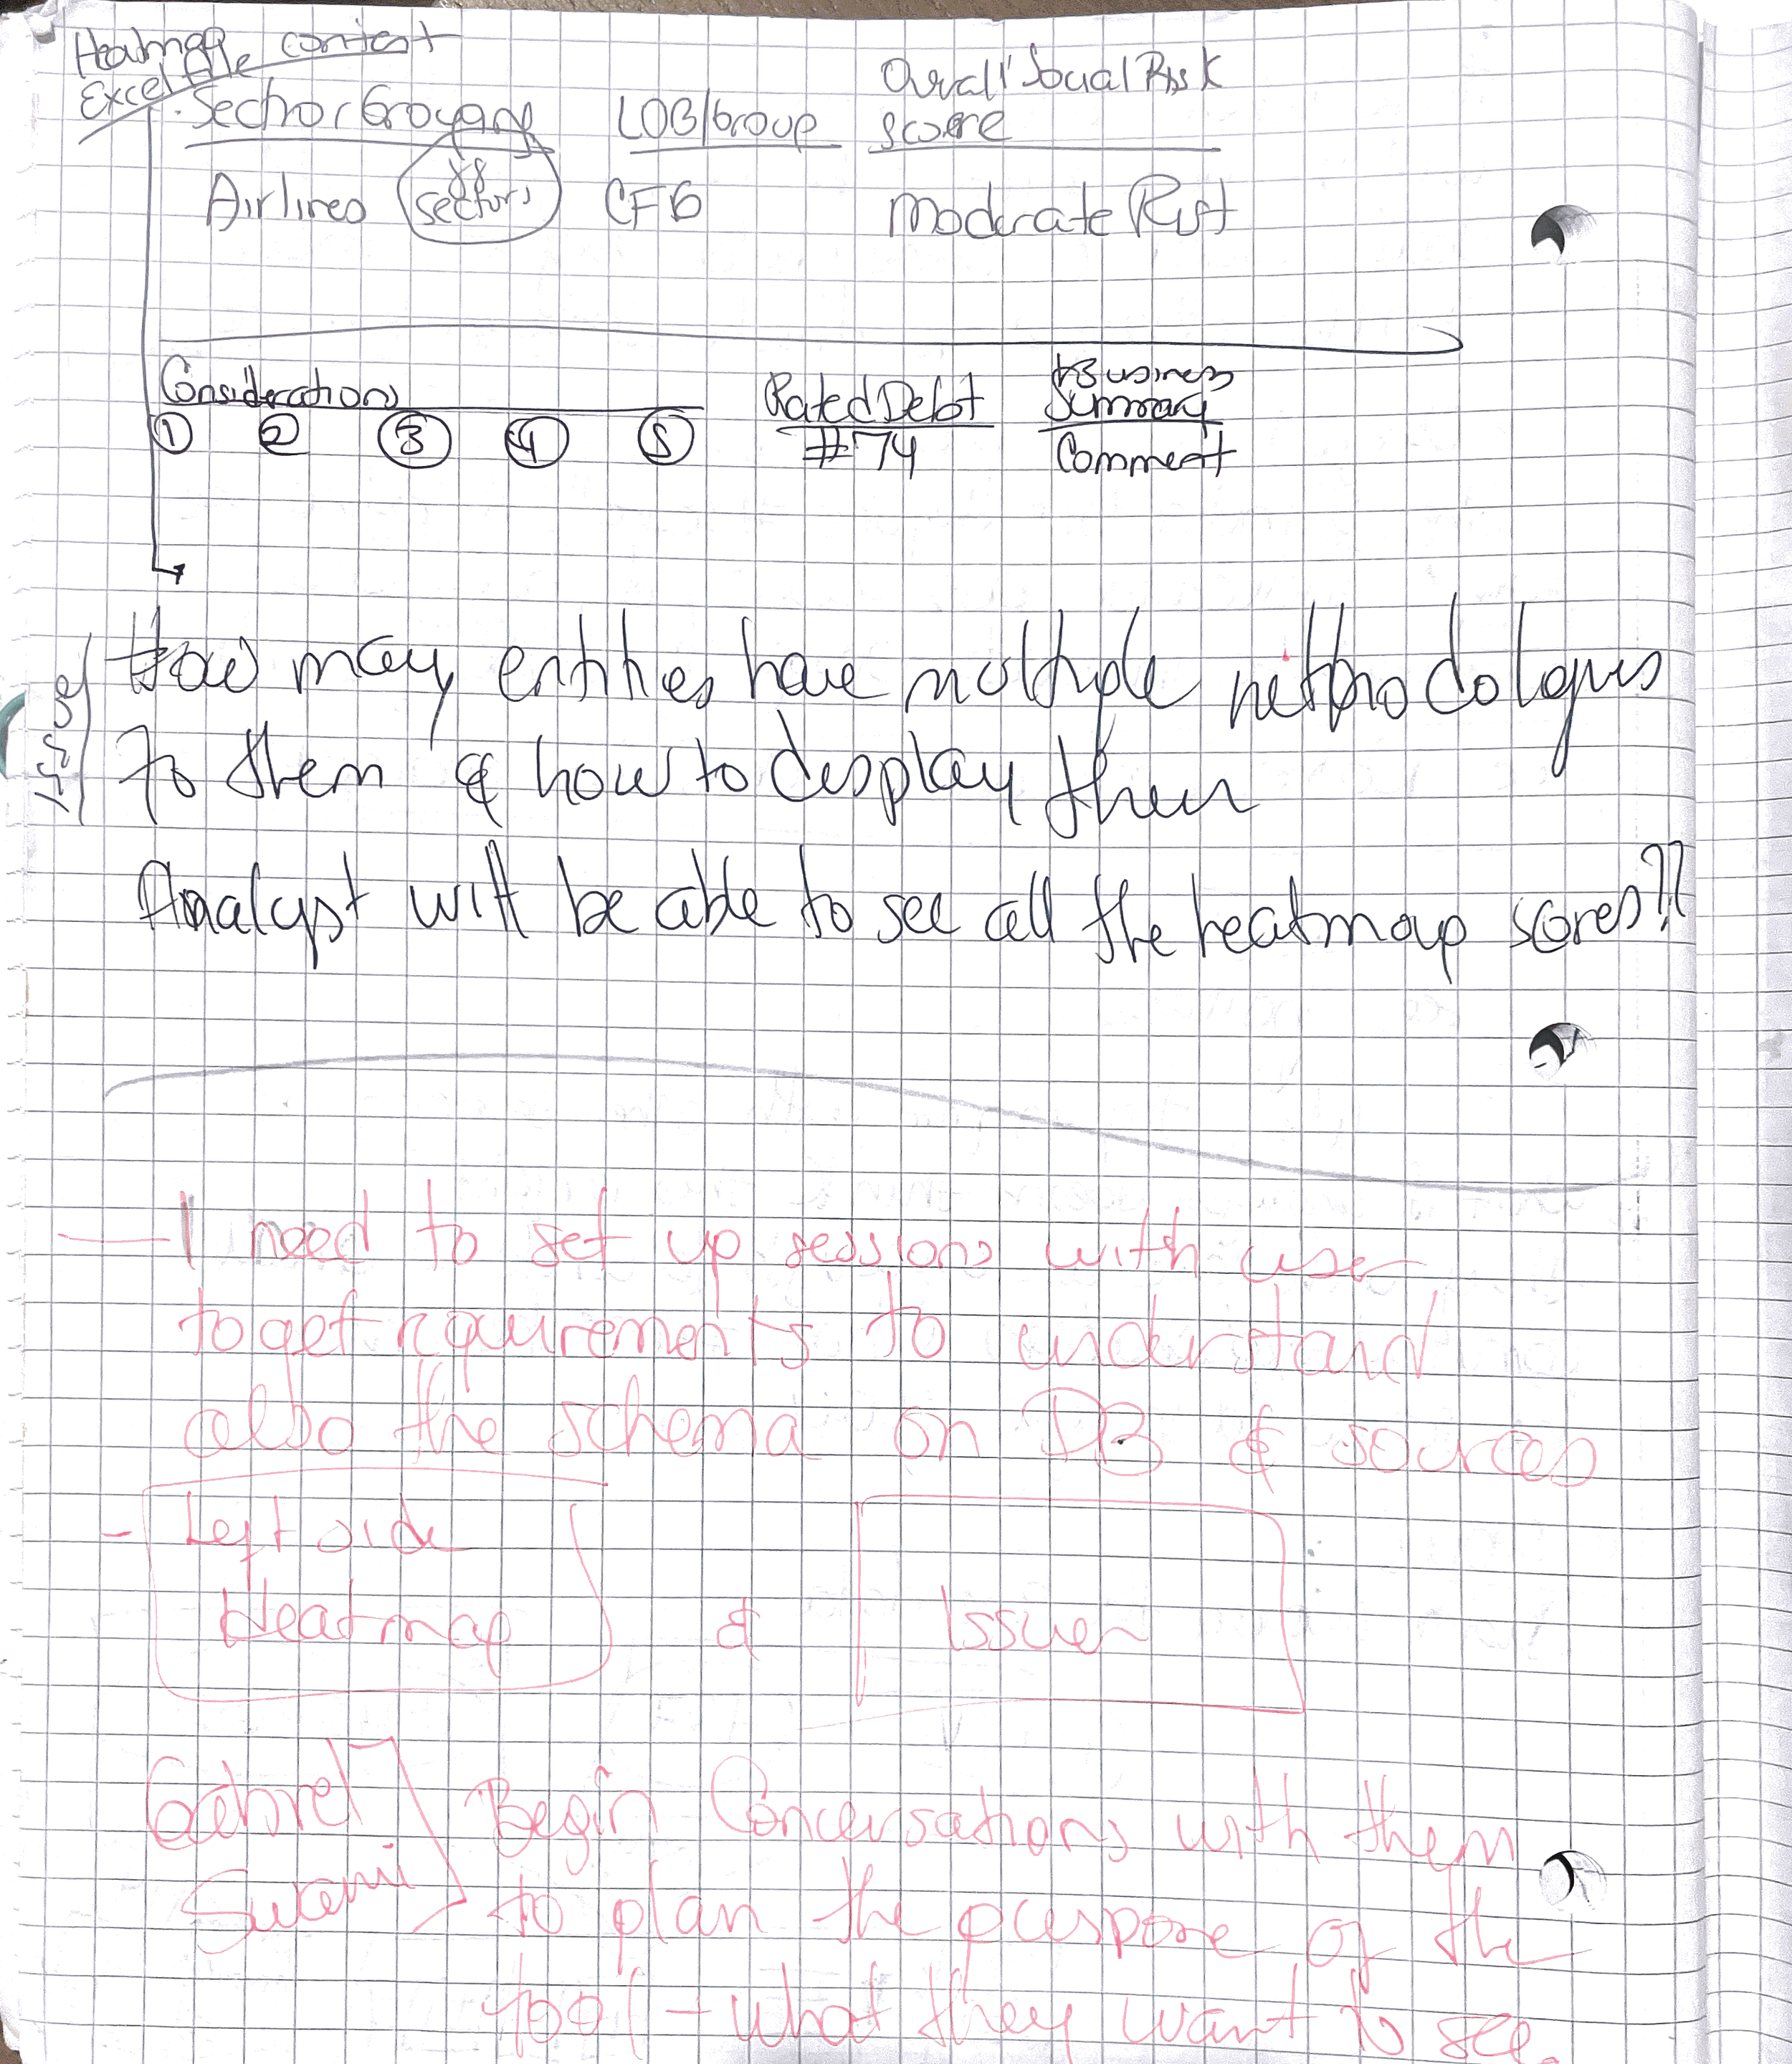 Heatmap content
Excel file
Sector Groyang LOB/Group Overall Social Risk Score
Airlines sectors CFG Moderate Risk
Considerations Rated Debt Business Summary
① ② ③ ④ ⑤ #74 Comment
How may entities have multiple methodologies
To them & how to display them
Analyst will be able to see all the heatmap scores??
— I need to set up sessions with user
to get requirements to understand
also the schema on DB & sources
- Left side
Heatmap & Issuer
Gabriel Begin Conversations with them
Swami to plan the puespose of the
tool - what they want to see